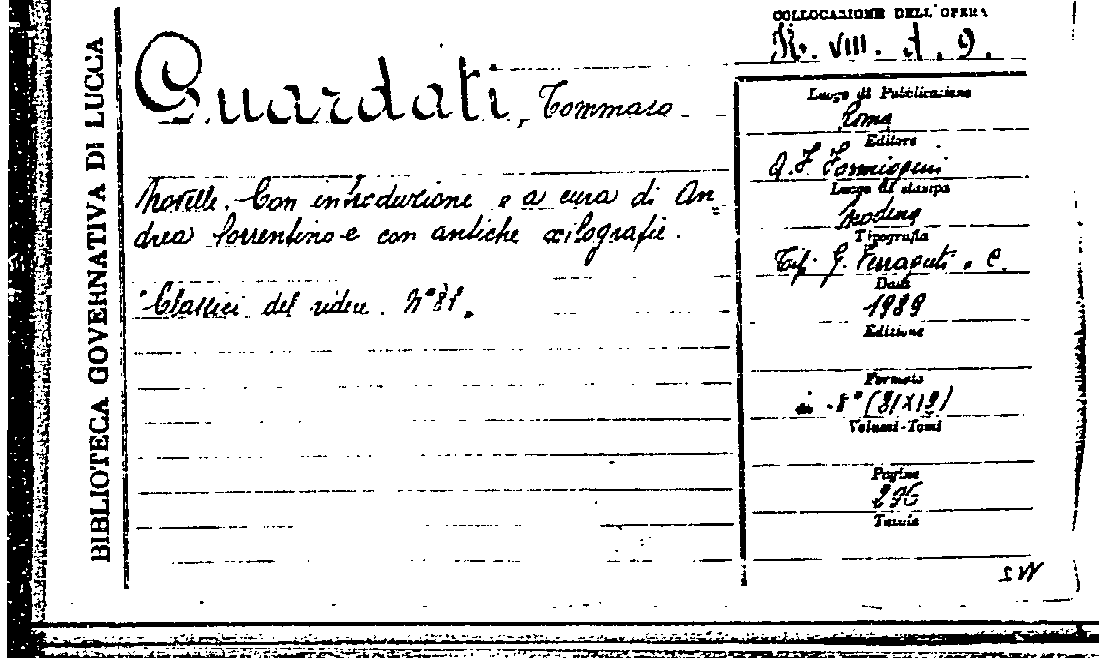 BIBLIOTECA GOVERNATIVA DI LUCCA
COLLOCAZIONE DELL'OPERA
VIII. A. 9.
Guardati, Tommaso
Novelle. Con introduzione e a cura di An=
drea Sorrentino e con antiche xilografie.
Classici del ridere. N°
Luogo di Pubblicazione
Roma
Editore
A. F. Formiggini
Luogo di stampa
Modena
Tipografia
Tip. G. Ferraguti e C.
Data
Edizione
Formato
in - 8°
Volumi-Tomi
Pagine
296
Tavole